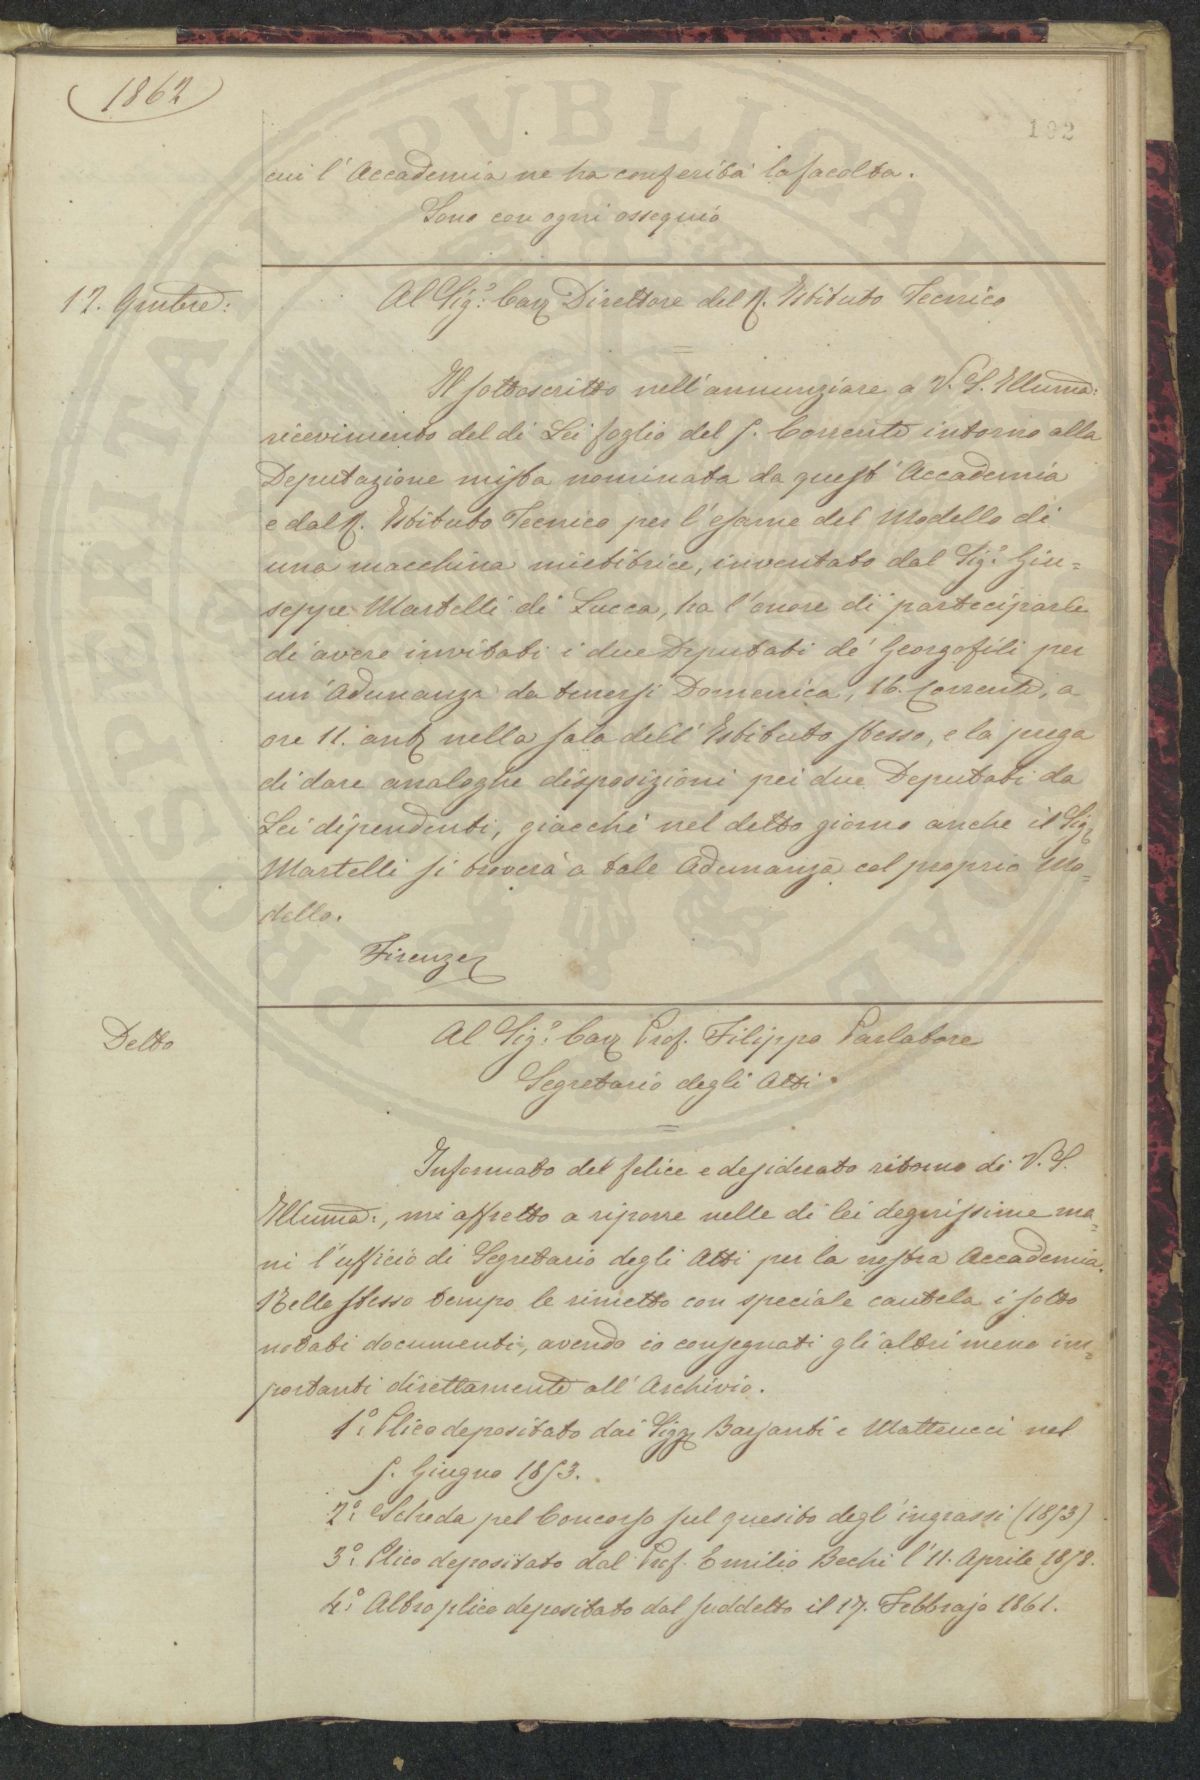 1862
102
cui l'Accademia ne ha conferita la facoltà.
Sono con ogni ossequio
12. 9mbre:
Al Sig.r Cav Direttore del R. Istituto Tecnico
Il sottoscritto nell'annunziare a V.S. Illuma:
ricevimento del di Lei foglio del 5. Corrente intorno alla
Deputazione mista nominata da quest'Accademia
e dal R. Istituto Tecnico per l'esame del Modello di
una macchina mietitrice, inventato dal Sig.r Giu=
seppe Martelli di Lucca, ha l'onore di parteciparle
di avere invitati i due Deputati de' Georgofili per
un'Adunanza da tenersi Domenica, 16. Corrente, a
ore 11. ant nella sala dell'Istituto stesso, e la prega
di dare analoghe disposizioni pei due Deputati da
Lei dipendenti, giacchè nel detto giorno anche il Sig
Martelli si troverà a tale Adunanza col proprio Mo=
dello.
Firenze
Detto
Al Sig.r Cav Prof. Filippo Parlatore
Segretario degli Atti.
Informato del felice e desiderato ritorno di V.S.
Illuma:, mi affretto a riporre nelle di lei degnissime ma=
ni l'ufficio di Segretario degli Atti per la nostra Accademia.
Nello stesso tempo le rimetto con speciale cautela i sotto
notati documenti, avendo io consegnati gli altri meno im=
portanti direttamente all'Archivio.
1°: Plico depositato dai Sigg Barsanti e Matteucci nel
5. Giugno 1853.
2°: Scheda pel Concorso sul quesito degl'ingrassi (1853)
3°: Plico depositato dal Prof. Emilio Bechi l'11. Aprile 1858.
4°: Altro plico depositato dal suddetto il 17. Febbrajo 1861.